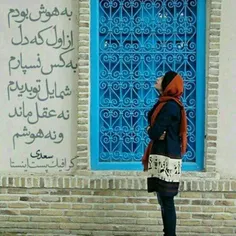 به هوش بودم
از اول که دل
به کس نسپارم
شمایل تو بدیدم
نه عقل ماند
و نه هوشم
سعدی